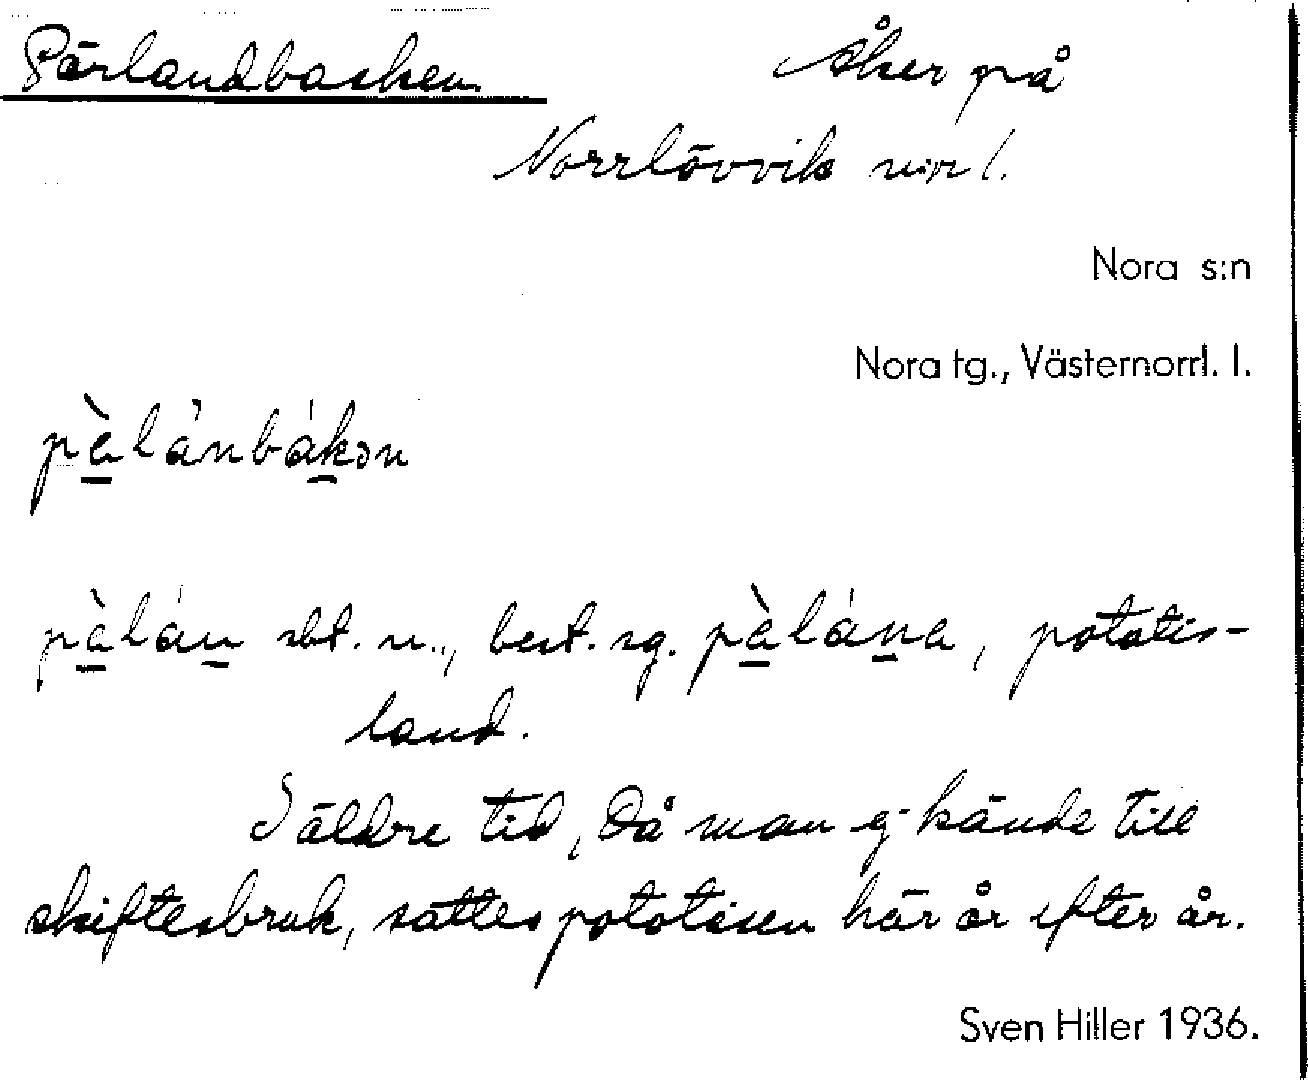 Pärlandbacken Åker på
Norrlövvik
Nora s:n
Nora tg., Västernorrl. l.
pàlánbákən
pàlán sbt. n., best. sg. pàlána, potatis-
land.
I äldre tid, då man ej kände till
skiftesbruk, sattes potatisen här år efter år.
Sven Hiller 1936.